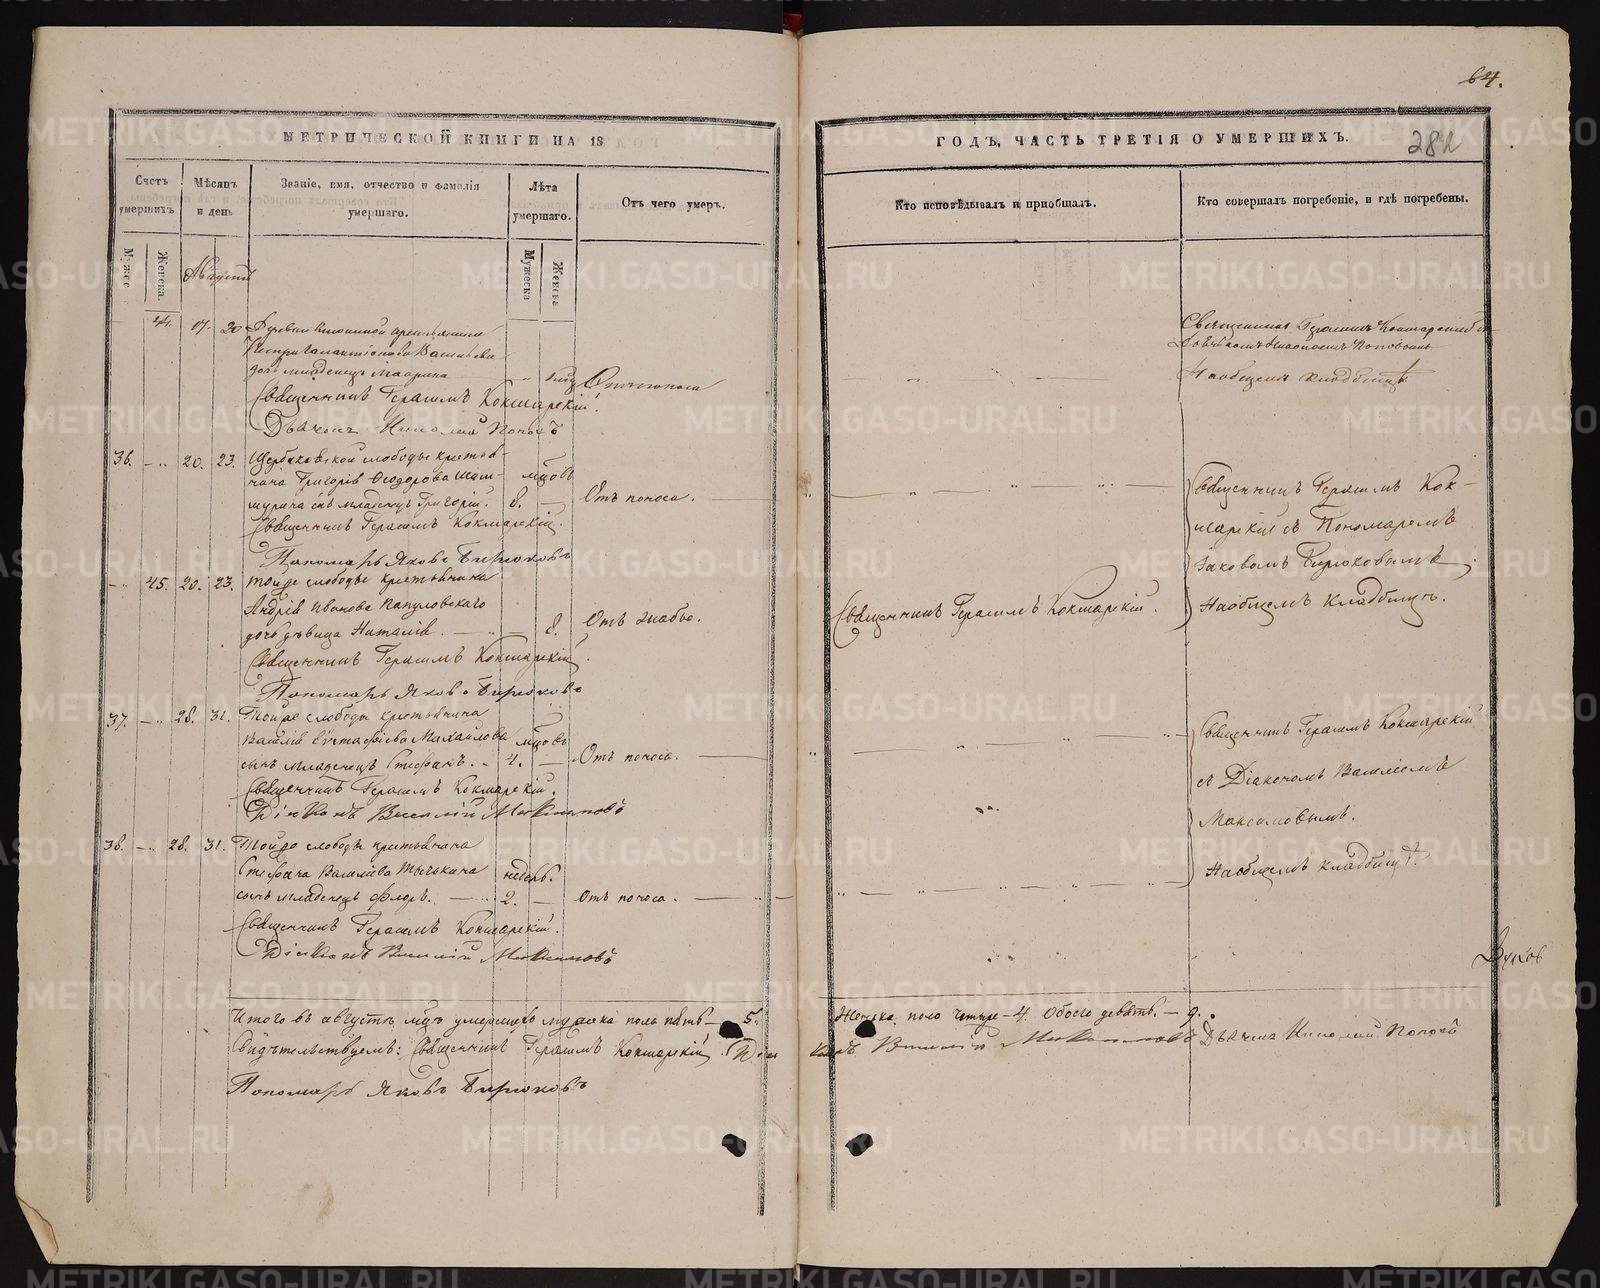 64.
282
МЕТРИЧЕСКОЙ КНИГИ НА 18
ГОДЪ, ЧАСТЬ ТРЕТІЯ О УМЕРШИХЪ.
Счетъ умершихъ
Мѣсяцъ и день
Званіе, имя, отчество и фамилія умершаго.
Лѣта умершаго.
Отъ чего умеръ.
Кто исповѣдывалъ и пріобщалъ.
Кто совершалъ погребеніе, и гдѣ погребены.
Мужес.
Женска.
Мужеска
Женска
Августъ
44. 17. 20
дочь младенецъ Маврина
Отъ поноса
Священникъ Герасимъ Кокшарскій
На общемъ кладбищѣ
Священникъ Герасимъ Кокшарскій.
Дьячекъ Николай Поповъ
36. 20. 23. Щербаковской слободы крестья-
нина Григорія Ѳеодорова Шам-
шурина сынъ младенецъ Григорій. 8.
мѣсвъ
Отъ поноса.
Священникъ Герасимъ Кокшарскій.
Пономарь Яковъ Бирюковъ
Священникъ Герасимъ Кок-
шарскій съ Пономаремъ
Іаковомъ Бирюковымъ.
На общемъ кладбищѣ.
45. 20. 23. Тойже слободы крестьянина
Андрея Иванова Папуловскаго
дочь дѣвица Наталія. 8.
Отъ знобьи.
Священникъ Герасимъ Кокшарскій.
Священникъ Герасимъ Кокшарскій.
Пономарь Яковъ Бирюковъ
37. 28. 31. Тойже слободы крестьянина
Василія Евстафіева Михайлова
сынъ младенецъ Стефанъ. 4.
мѣсвъ
Отъ поноса.
Священникъ Герасимъ Кокшарскій.
Діаконъ Василій Максимовъ
Священникъ Герасимъ Кокшарскій
съ Діакономъ Василіемъ
Максимовымъ.
На общемъ кладбищѣ.
38. 28. 31. Тойже слободы крестьянина
Стефана Василіева Тычкина
сынъ младенецъ Флоръ. 2.
недѣль.
Отъ поноса.
Священникъ Герасимъ Кокшарскій.
Діаконъ Василій Максимовъ
Итого въ августѣ мцѣ умершихъ мужеска полу пять — 5.
Женска полу четыре — 4. Обоего девять. — 9.
Свидѣтельствуемъ: Священникъ Герасимъ Кокшарскій. Діаконъ Василій Максимовъ Дьячекъ Николай Поповъ
Пономарь Яковъ Бирюковъ
METRIKI.GASO-URAL.RU